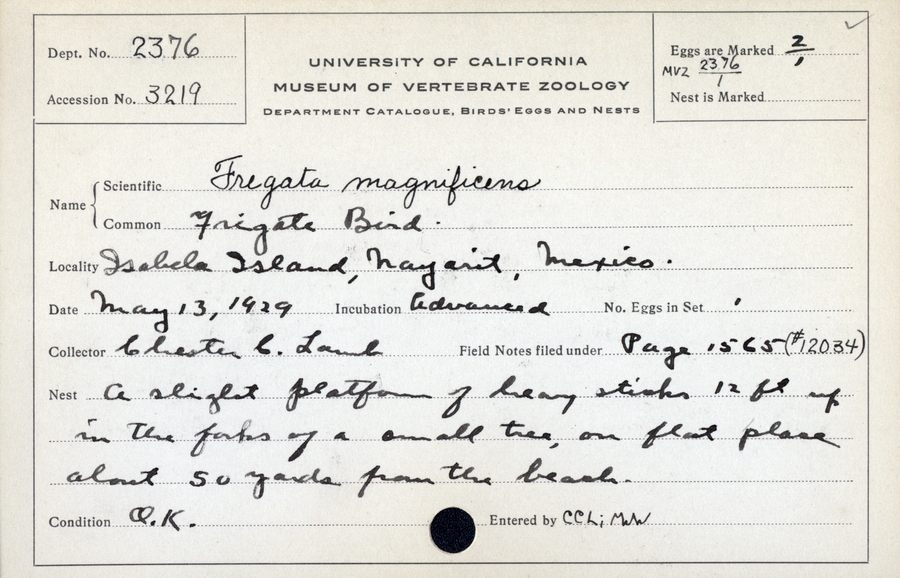 Dept. No. 2376
Accession No. 3219
UNIVERSITY OF CALIFORNIA
MUSEUM OF VERTEBRATE ZOOLOGY
DEPARTMENT CATALOGUE, BIRDS' EGGS AND NESTS
Eggs are Marked 2/1
MVZ 2376/1
Nest is Marked
Name { Scientific Fregata magnificens
Common Frigate Bird.
Locality Isabela Island, Nayarit, Mexico.
Date May 13, 1929 Incubation Advanced No. Eggs in Set 1
Collector Chester C. Lamb Field Notes filed under Page 1565 (#12034)
Nest A slight platform of heavy sticks 12 ft up
in the forks of a small tree, on flat place
about 50 yards from the beach.
Condition O.K. Entered by CCL; MWW